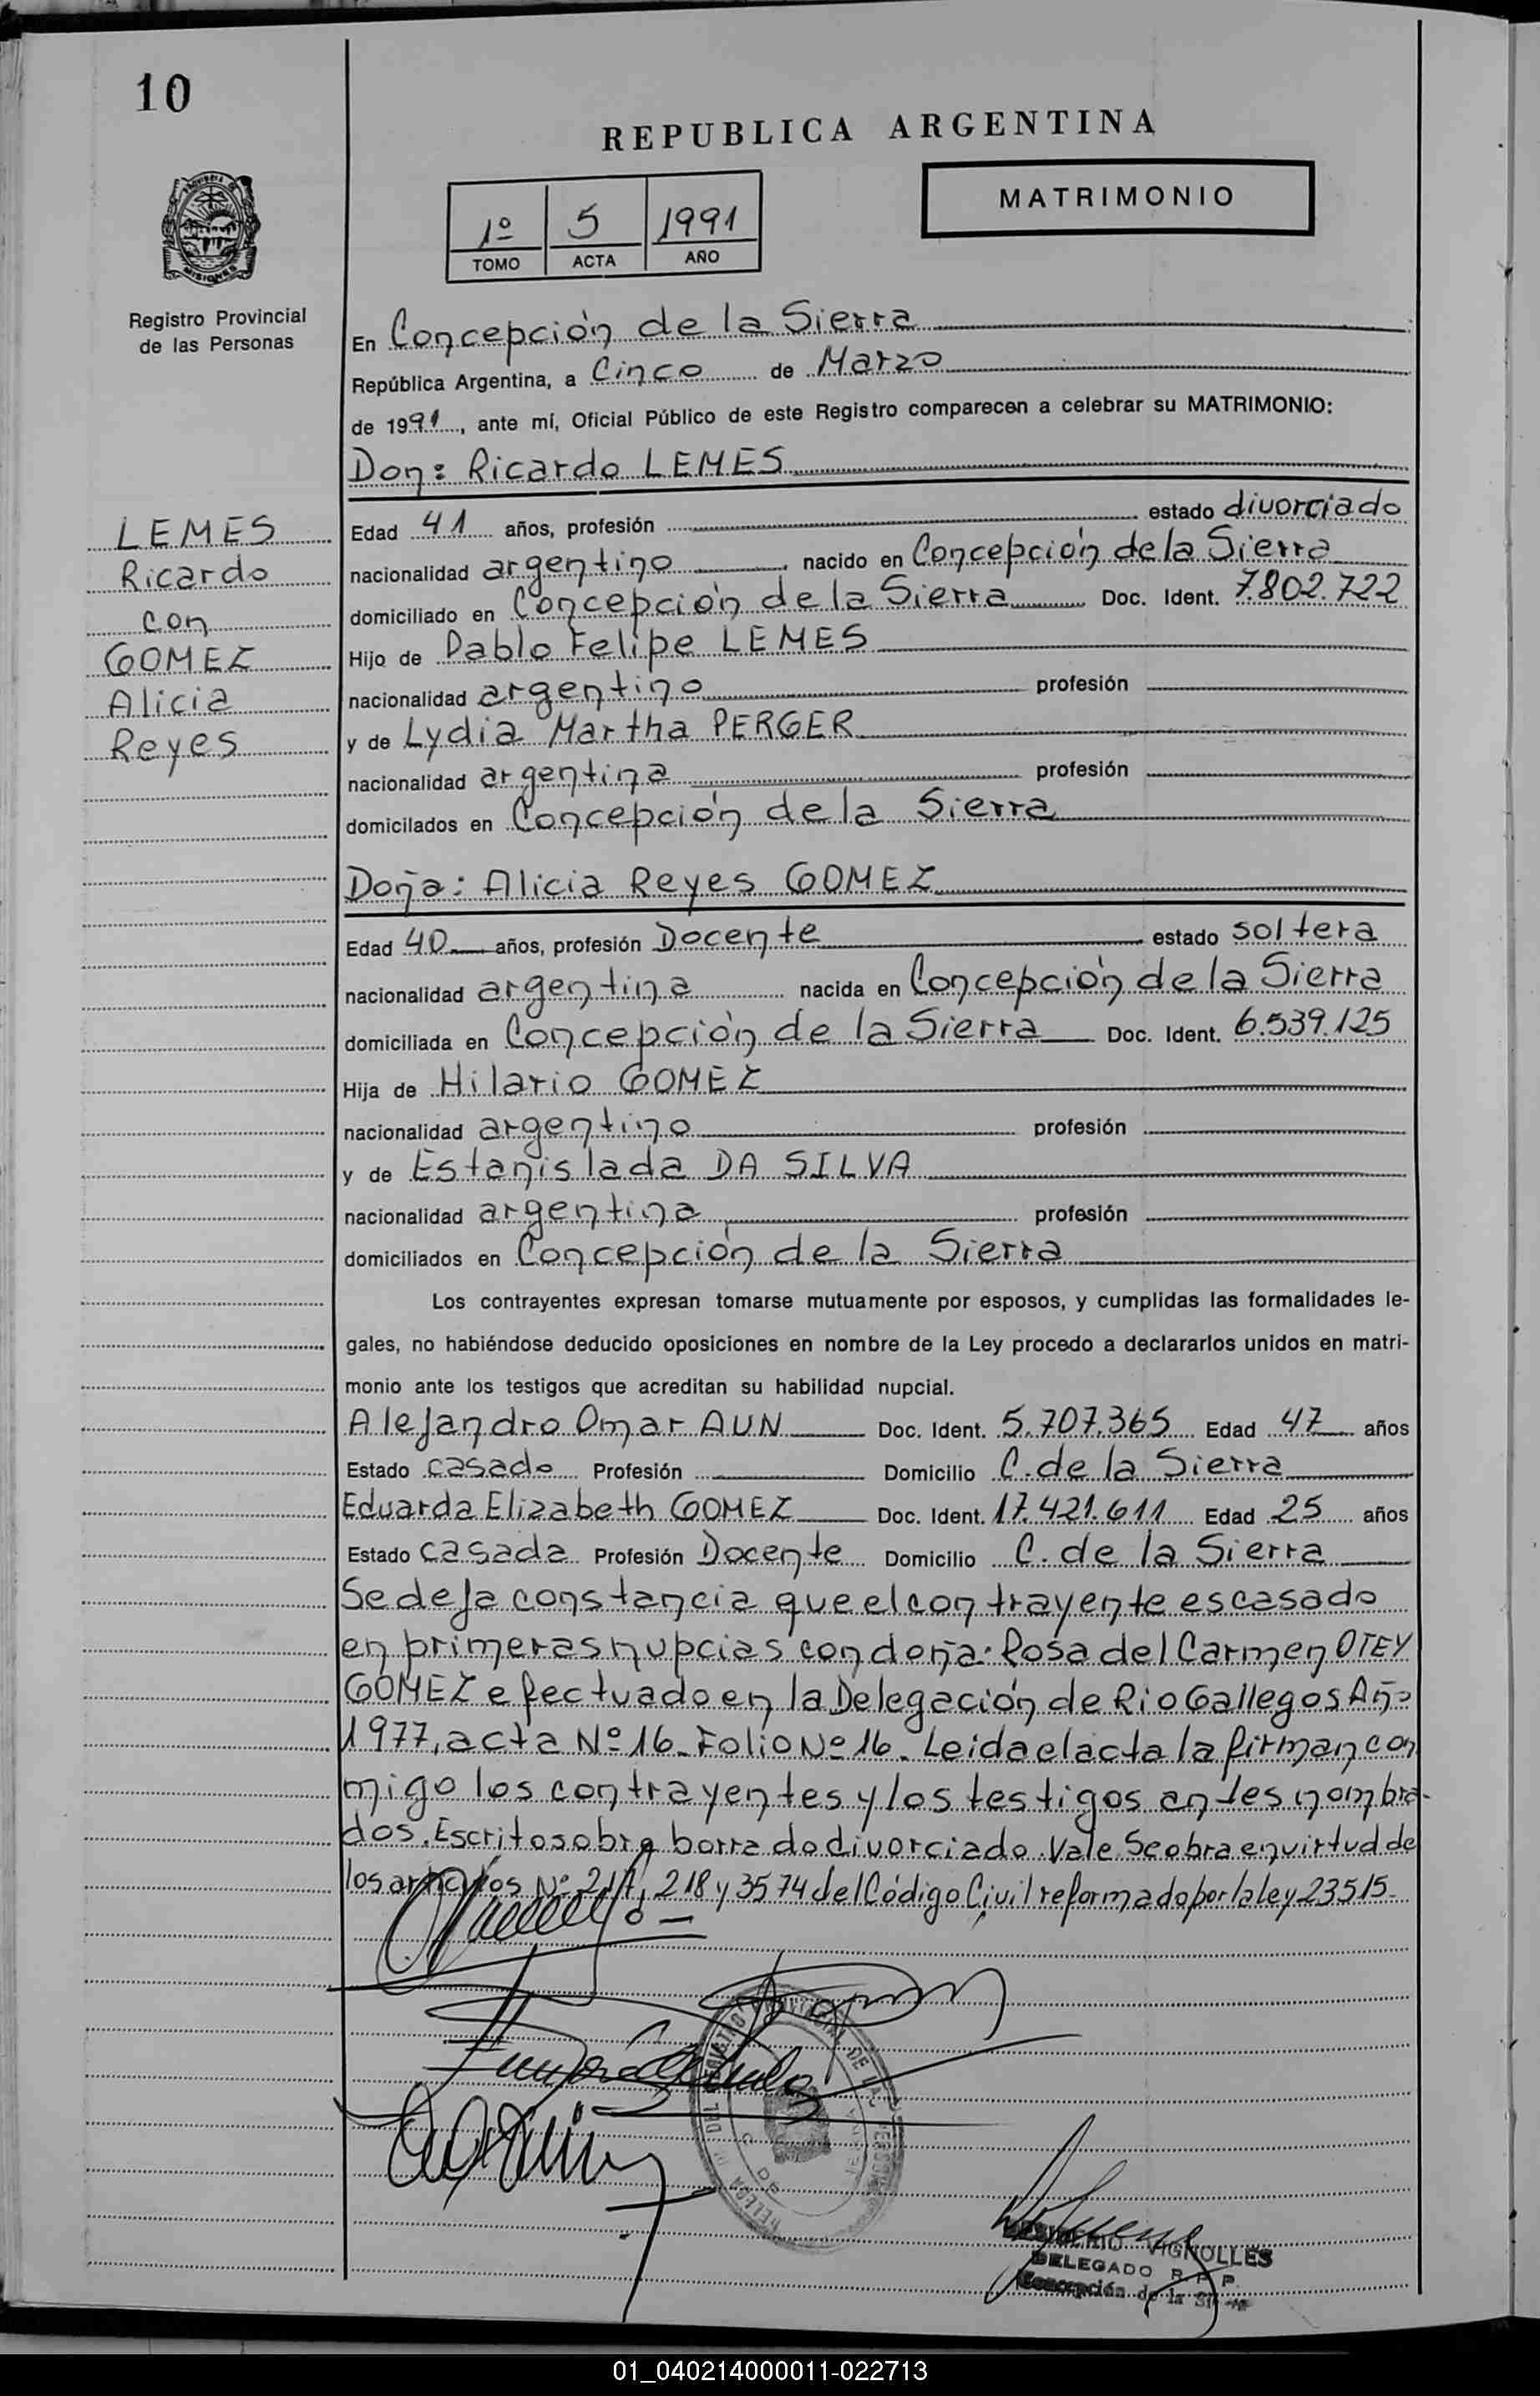 10
REPUBLICA ARGENTINA
MATRIMONIO
1º 5 1991
TOMO ACTA AÑO
MISIONES
Registro Provincial
de las Personas
En Concepción de la Sierra
República Argentina, a Cinco de Marzo
de 1991, ante mí, Oficial Público de este Registro comparecen a celebrar su MATRIMONIO:
Don: Ricardo LEMES
LEMES
Ricardo
con
GOMEZ
Alicia
Reyes
Edad 41 años, profesión estado divorciado
nacionalidad argentino nacido en Concepción de la Sierra
domiciliado en Concepción de la Sierra Doc. Ident. 7.802.722
Hijo de Pablo Felipe LEMES
nacionalidad argentino profesión
y de Lydia Martha PERGER
nacionalidad argentina profesión
domicilados en Concepción de la Sierra
Doña: Alicia Reyes GOMEZ
Edad 40 años, profesión Docente estado soltera
nacionalidad argentina nacida en Concepción de la Sierra
domiciliada en Concepción de la Sierra Doc. Ident. 6.539.125
Hija de Hilario GOMEZ
nacionalidad argentino profesión
y de Estanislada DA SILVA
nacionalidad argentina profesión
domiciliados en Concepción de la Sierra
Los contrayentes expresan tomarse mutuamente por esposos, y cumplidas las formalidades le-
gales, no habiéndose deducido oposiciones en nombre de la Ley procedo a declararlos unidos en matri-
monio ante los testigos que acreditan su habilidad nupcial.
Alejandro Omar AUN Doc. Ident. 5.707.365 Edad 47 años
Estado casado Profesión Domicilio C. de la Sierra
Eduarda Elizabeth GOMEZ Doc. Ident. 17.421.611 Edad 25 años
Estado casada Profesión Docente Domicilio C. de la Sierra
Se deja constancia que el contrayente es casado
en primeras nupcias con doña: Rosa del Carmen OTEY
GOMEZ efectuado en la Delegación de Rio Gallegos Año
1977, acta Nº 16 - Folio Nº 16. Leida el acta la firman con
migo los contrayentes y los testigos antes nombra-
dos. Escrito sobre borrado divorciado. Vale. Se obra en virtud de
los articulos Nº 217, 218 y 3574 del Código Civil reformado por la ley 23515-
VIGNOLLES
DELEGADO R P P
Concepción de la Sierra
01_040214000011-022713